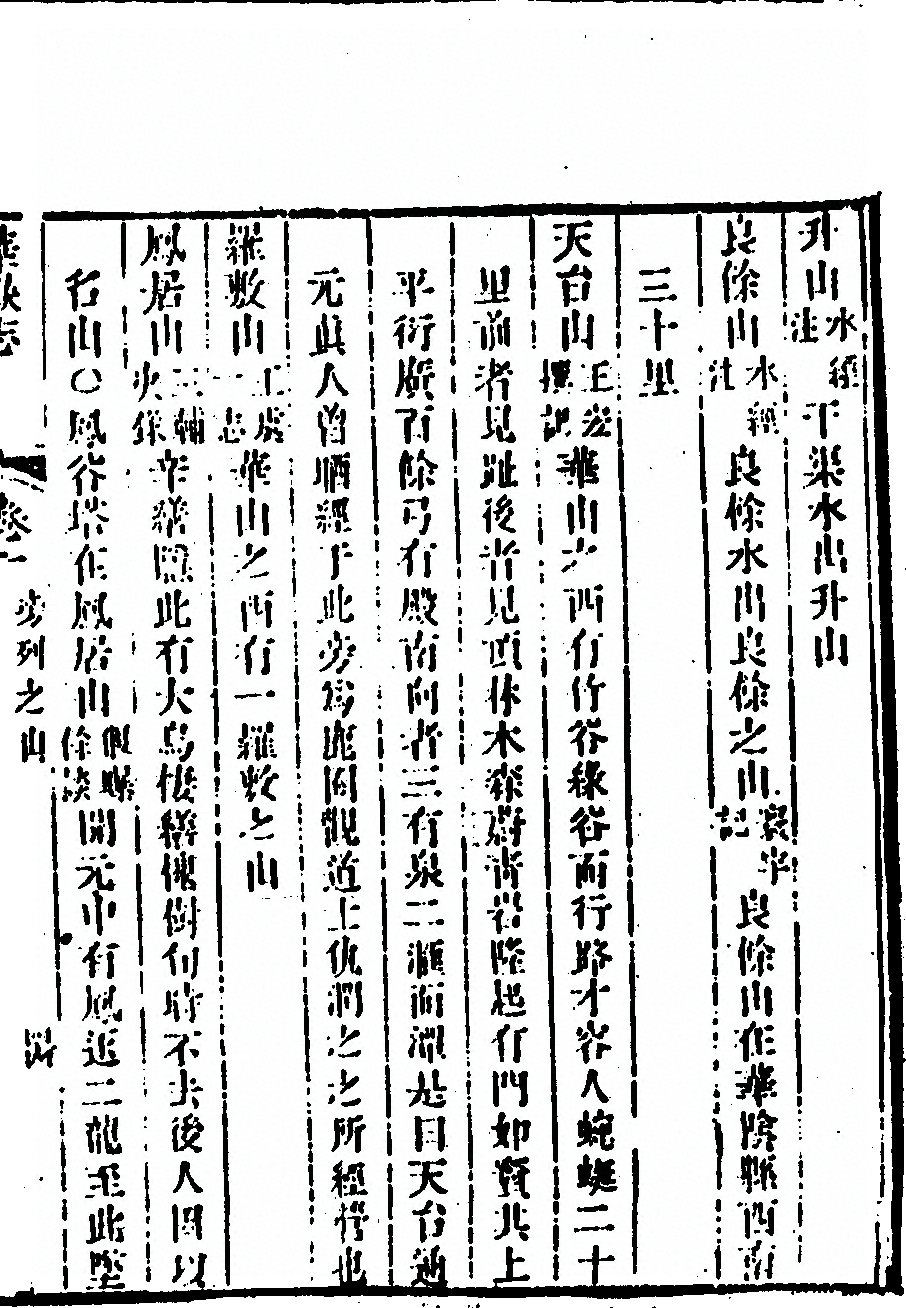 升山水經注平渠水出升山
良餘山水經注良餘水出良餘之山寰宇記良餘山在華陰縣西南
三十里
天台山王宏撰記華山之西有竹谷緣谷而行路才容人蜿蜒二十
里前者見趾後者見頂林木森蔚峕岩隆起有門如竇其上
平衍廣百餘弓有殿南向者三有泉二滙而淵是曰天台通
元眞人曾晒經于此旁爲毘盧觀道士仇澗之之所經營也
羅敷山王處一志華山之西有一羅敷之山
鳳居山三輔決錄辛繕隱此有大鳥棲繕槐樹旬時不去後人因以
名山〇風谷塔在鳳居山假髁餘談開元中有鳳逐二龍至此墜
華嶽志 卷一 旁列之山